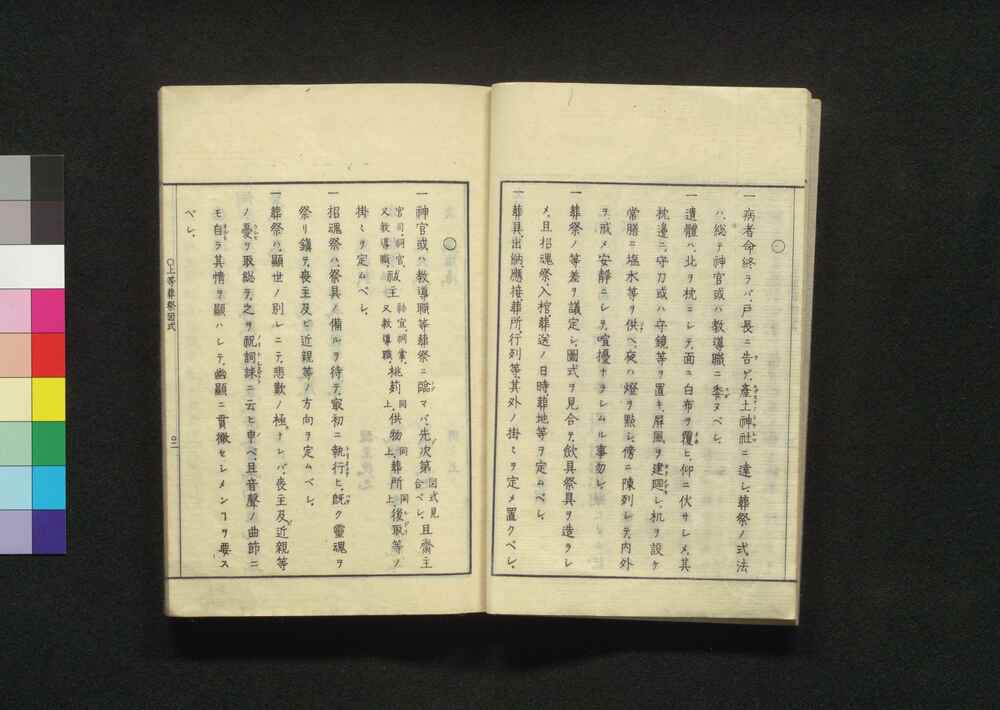 一 病者命終ラバ、戸長ニ告ゲ、產土神社ニ達シ、葬祭ノ式法
ハ、総テ神官或ハ教導職ニ委ヌベシ、
一 遺體ハ、北ヲ枕ニシテ、面ニ白布ヲ覆ヒ、仰ニ伏サシメ、其
枕邊ニ、守刀或ハ守鏡等ヲ置キ、屏風ヲ建囘シ、机ヲ設ケ
常膳ニ塩水等ヲ供ヘ、夜ハ燈ヲ點シ、傍ニ陳列シテ、内外
ヲ戒メ、安靜ニシテ、喧擾ナラシムル事勿レ、
一 葬祭ノ等差ヲ議定シ、圖式ヲ見合テ、飲具祭具ヲ造ラシ
メ、且招魂祭、入棺、葬送ノ日時、葬地等ヲ定ムベシ、
一 葬具、出納、應接、葬所、行列等、其外ノ掛リヲ定メ置クベシ、
一 神官或ハ教導職等、葬祭ニ臨マバ、先次第図式見合ベシ、且齋主
宮司、祠官、又教導職、祓主祢宜、祠掌、又教導職、桃莉同上、供物同上、葬所同上、後取等ノ
掛リヲ定ムベシ、
一 招魂祭ハ、祭具ノ備ルヲ待テ、最初ニ執行ヒ、既ク靈魂ヲ
祭リ鎭テ、喪主及ビ近親等ノ方向ヲ定ムベシ、
一 葬祭ハ、顯世ノ別レニテ、悲歎ノ極ナレバ、喪主及近親等
ノ憂ヲ取総テ、之ヲ祝詞誄ニ云ヒ申ベ、且音聲ノ曲節ニ
モ自ラ其情ヲ顯ハシテ、幽顯ニ貫徹セシメンヿヲ要ス
ベシ、
〇上等葬祭図式
〇二